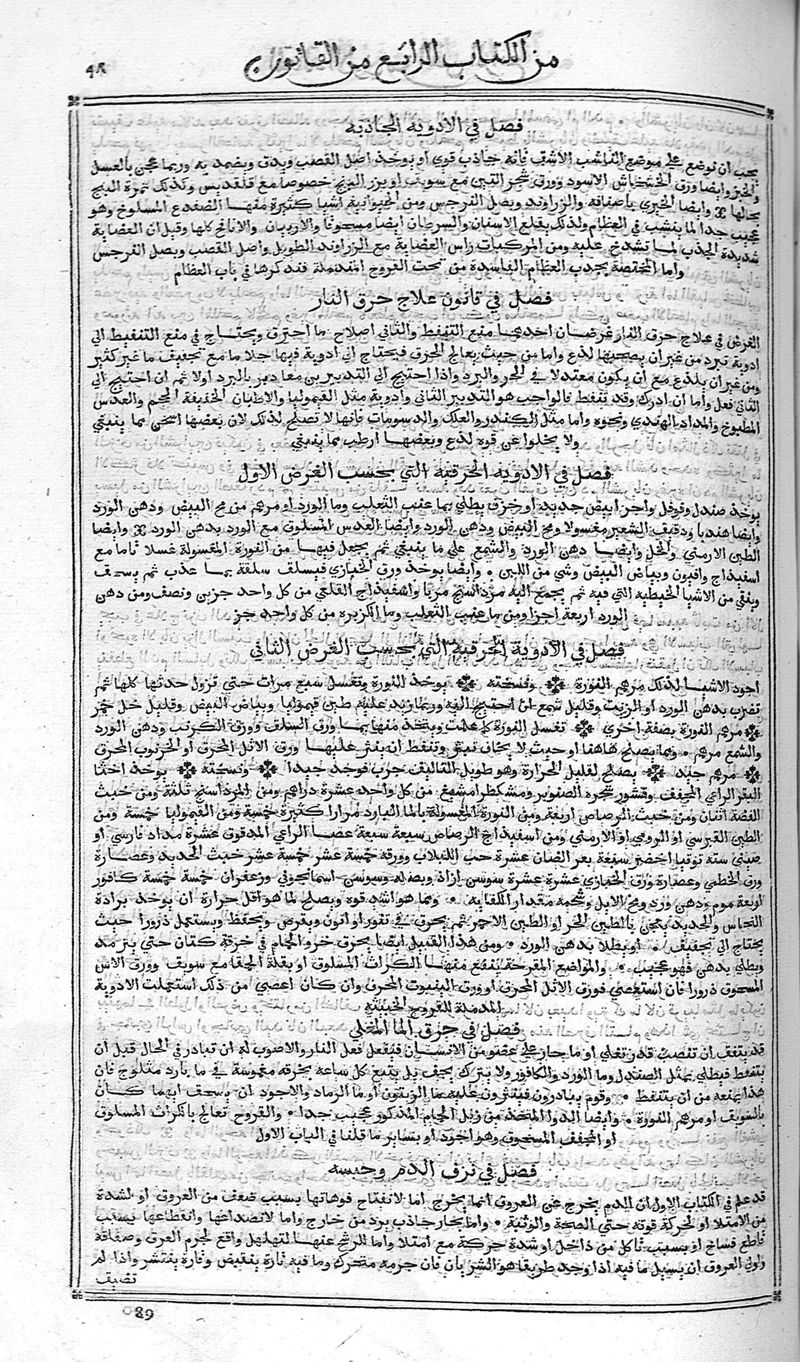 من الكتاب الرابع من القانون
فصل في الادوية الجاذبة
يجب ان توضع على موضع الناشب الاشق فانه جاذب قوي او يوخذ اصل القصب ويدق ويضمد به وربما عجن بالعسل
والخبز وايضا ورق الخشخاش الاسود وورق شجر التين مع سويق او بزر البنج خصوصا مع قلقديس وكذلك ثمرة البنج
بحالها وايضا الخيري باصنافه والزراوند وبصل النرجس ومن الحيوانية اشيا كثيرة منها الضفدع المسلوخ وهو
عجيب جدا لما ينشب في العظام ولذلك يقلع الاسنان والسرطان ايضا مسحوقا والاربيان والانافح كلها وقيل ان العضاية
شديدة الجذب لما تشدخ عليه ومن المركبات راس العضاية مع الزراوند الطويل واصل القصب وبصل النرجس
واما المختصة بجذب العظام الفاسدة من تحت القروح المندملة فنذكرها في باب العظام
فصل في قانون علاج حرق النار
الغرض في علاج حرق النار غرضان احديهما منع التنفط والثاني اصلاح ما احترق ويحتاج في منع التنفيط الى
ادوية تبرد من غير ان يصحبها لذع واما من حيث يعالج الحرق فيحتاج الى ادوية فيها جلا ما مع تجفيف ما غير كثير
ومن غير ان يلذع مع ان يكون معتدلا في الحر والبرد واذا احتيج الى التدبيرين معا دبر بالبرد اولا ثم ان احتيج الى
الثاني فعل واما ان ادرك وقد تنفط فالواجب هو التدبير الثاني وادوية مثل القيموليا والاطيان الخفيفة الحجم والعدس
المطبوخ والمداد الهندي ونحوه واما مثل الكندر والعلك والدسومات فانها لا تصلح لذلك لان بعضها اسخن مما ينبغي
ولا يخلوا عن قوة لذع وبعضها ارطب مما ينبغي
فصل في الادوية الحرقية التي بحسب الغرض الاول
يوخذ صندل وفوفل واجر ابيض جديد او خزف يطلى بما عنب الثعلب وما الورد او مرهم من مح البيض ودهن الورد
وايضا هندبا ودقيق الشعير مغسولا ومح البيض ودهن الورد وايضا العدس المسلوق مع الورد بدهن الورد وايضا
الطين الارمني والخل وايضا دهن الورد والشمع على ما ينبغي ثم يجعل فيها من النورة المغسولة غسلا تاما مع
اسفيداج وافيون وبياض البيض وشي من اللبن وايضا يوخذ ورق الخبازي فيسلق سلقة بما عذب ثم يسحق
وينقى من الاشيا الخيطية التي فيه ثم يجمع اليه مرداسنج مربا واسفيداج القلعي من كل واحد جزين ونصف ومن دهن
الورد اربعة اجزا ومن ما عنب الثعلب وما الكزبره من كل واحد جز
فصل في الادوية الحرقية التي بحسب الغرض الثاني
اجود الاشيا لذلك مرهم النورة ونسخته يوخذ النورة وتغسل سبع مرات حتى تزول حدتها كلها ثم
تضرب بدهن الورد او الزيت وقليل شمع ان احتيج اليه وربما زيد عليه طين قيموليا وبياض البيض وقليل خل خمر
مرهم النورة بصفة اخرى تغسل النورة كما علمت ويتخذ منها بما ورق السلق وورق الكرنب ودهن الورد
والشمع مرهم ومما يصلح هاهنا او حيث لا يخاف تبثر وتنفط ان ينثر عليها ورق الاثل المحرق او الخرنوب المحرق
مرهم جيد يصلح لقليل الحرارة وهو طويل التاليف جرب فوجد جيدا ونسخته يوخذ اخثا
البقر الراعي المجفف وقشور شجرة الصنوبر ومشكطرامشيغ من كل واحد عشرة دراهم ومن المرداسنج ثلثة ومن خبث
الفضة اثنان ومن خبث الرصاص اربعة ومن النورة المغسولة بالما البارد مرارا كثيرة خمسة ومن القيموليا خمسة ومن
الطين القبرسي او الرومي او الارمني ومن اسفيداج الرصاص سبعة سبعة عصا الراعي المدقوق عشرة مداد فارسي او
صيني سته توتيا اخضر سبعة بعر الضان عشرة حب اللبلاب وورقه خمسة عشر خمسة عشر خبث الحديد وعصارة
ورق الخطمي وعصارة ورق الخبازي عشرة عشرة سوسن ازاذ وبصله وسوسن اسمانجوني وزعفران خمسة خمسة كافور
اربعة موم ودهن ورد ومخ الايل وشحمه مقدار الكفاية ومما هو اشد قوة ويصلح لما هو اقل حرارة ان يوخذ برادة
النحاس والحديد يعجن بالطين الحر او الطين الاحمر ثم يحرق في تنور او اتون ويقرض ويحفظ ويستعمل ذرورا حيث
يحتاج الى تجفيف او يطلا بدهن الورد ومن هذا القبيل ايضا يحرق خرو الحمام في خرقة كتان حتى يترمد
ويطلى بدهن فهو عجيب والمواضع المقرحة ينفع منها الكراث المسلوق او بقلة الحمقا مع سويق وورق الاس
المسحوق ذرورا فان استعصى فورق الاثل المحرق او ورق الينبوت المحرق وان كان اعصى من ذلك استعملت الادوية
المدملة للقروح الخبيثة
فصل في حرق الما المغلي
قد يتفق ان تنصب قدر تغلي او ما حار على عضو من الانسان فيفعل فعل النار والاصوب له ان تبادر في الحال قبل ان
يتنفط فيطلى بمثل الصندل وما الورد والكافور ولا يترك يجف بل يتبع كل ساعة بخرقة مغموسة في ما بارد مثلوج فان
هذا يمنعه من ان يتنفط وقوم يبادرون فينثرون عليه ما الزيتون او ما الرماد والاجود ان يسحق ايهما كان
بالسويق او مرهم النورة وايضا الدوا المتخذ من زبل الحمام المذكور عجيب جدا والقروح تعالج بالكراث المسلوق
او المجفف المسحوق وهو اجود او بسايرما قلنا في الباب الاول
فصل في نزف الدم وحبسه
قد علم في الكتاب الاول ان الدم يخرج عن العروق انما يخرج اما لانفتاح فوهاتها بسبب ضعف من العروق او لشدة
من الامتلا او لحركة قوية حتى الصيحة والوثبة واما بحار جاذب يرد من خارج واما لانصداعها وانقطاعها بسبب
قاطع فساخ او بسبب تاكل من داخل او شدة حركة مع امتلا واما للرشح عنها لتهلهل واقع لجرم العرق وصفاقه
واولى العروق ان يسيل ما فيه اذا وجد طريقا هو الشريان فان جرمه متحرك وما فيه تارة ينقبض وتارة ينتشر واذا لم
تضيق
89